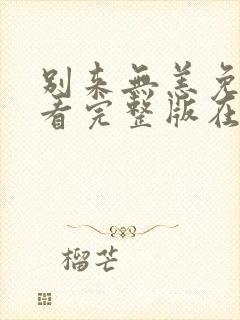 别来無恙免
看完整版在
榴芒